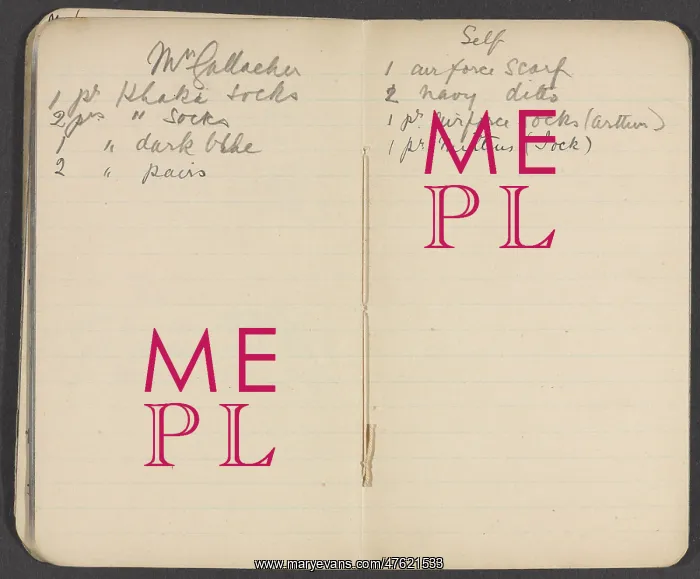 Mrs Gallacher
1 pr Khaki Socks
2 prs " Socks
1 " dark blue
2 " pairs
Self
1 air force Scarf
2 navy ditto
1 pr airforce Socks (Arthur)
1 pr mittens (Jock)
ME
PL
ME
PL
www.maryevans.com/47621538